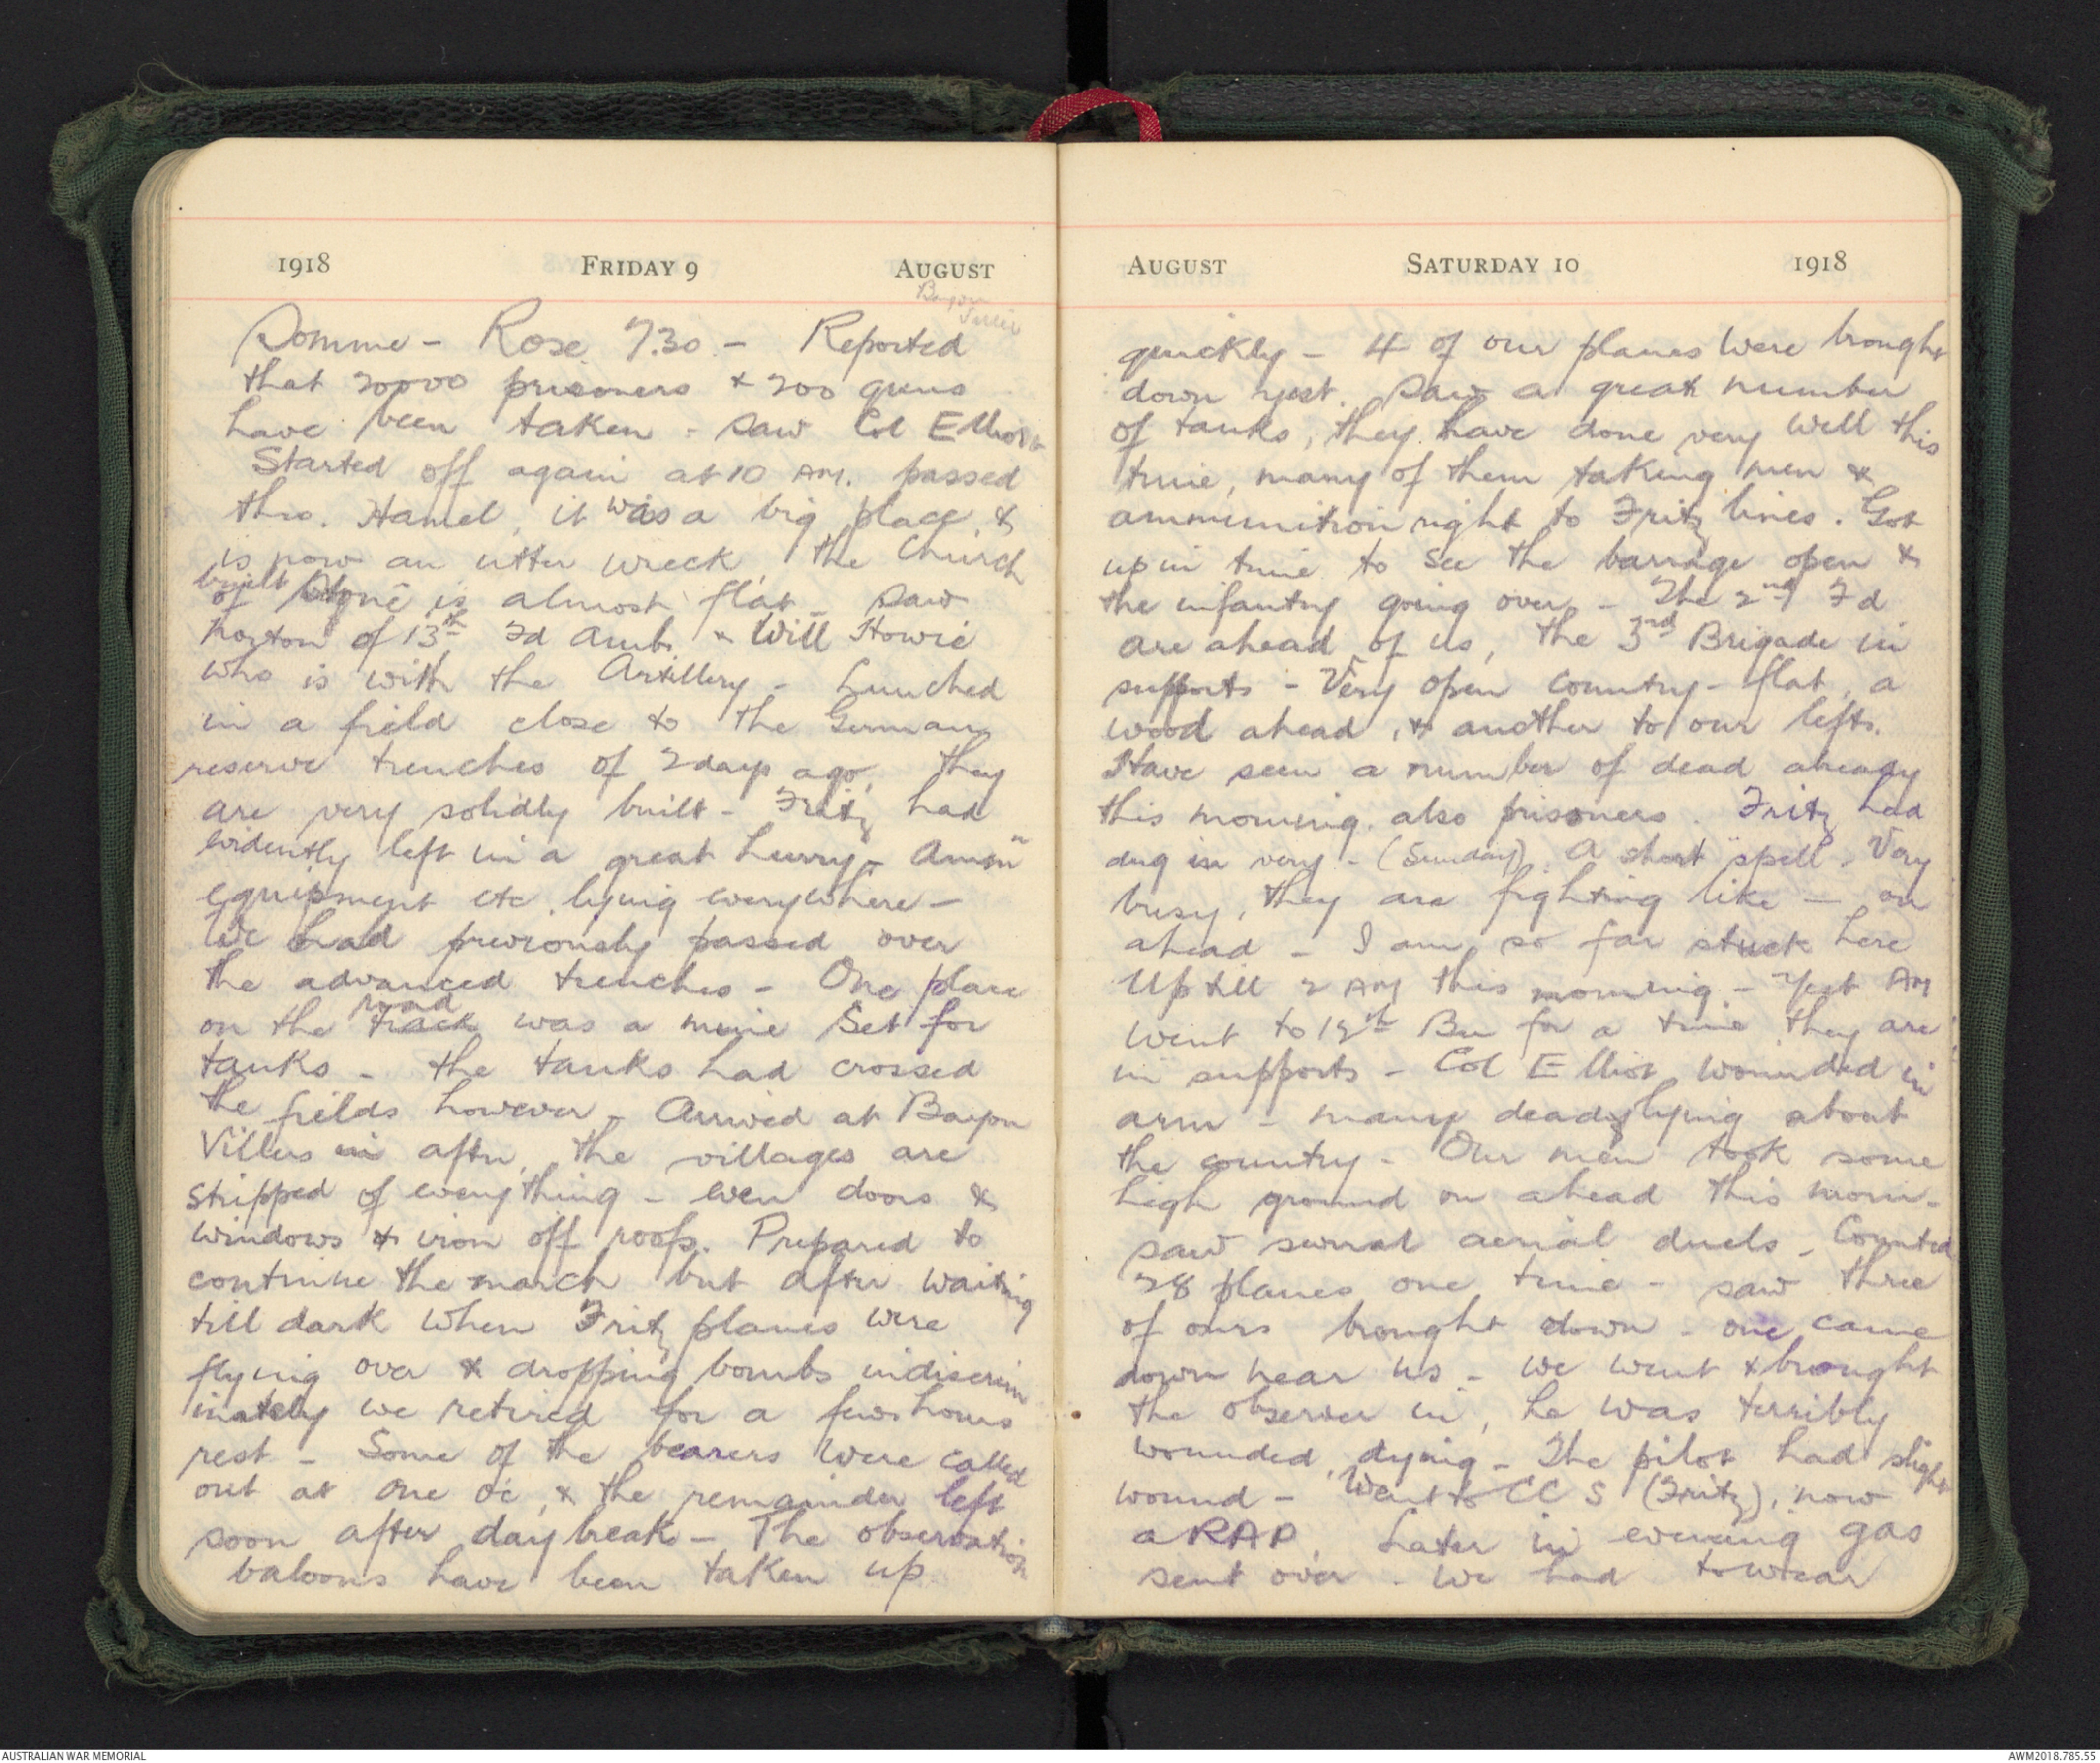 1918 FRIDAY 9 AUGUST
Somme - Rose 7.30 - Reported
that 20000 prisoners & 200 guns
have been taken - saw Col Elliott
Started off again at 10 AM. passed
thro. Hamel, it was a big place, &
is now an utter wreck, the Church
built
of stone is almost flat - saw
of 13th Fd Amb. & Will Howie
who is with the Artillery - Lunched
in a field close to the German
reserve trenches of 2 days ago, they
are very solidly built - Fritz had
evidently left in a great hurry - Ammn
equipment etc. lying everywhere -
We had previously passed over
the advanced trenches - One place
road
on the track was a mine set for
tanks - the tanks had crossed
the fields however - Arrived at Bayon
Villers in aftn, the villages are
stripped of everything - even doors &
windows & iron off roofs. Prepared to
continue the march but after waiting
till dark when Fritz planes were
flying over & dropping bombs indiscrim
inately we retired for a few hours
rest - Some of the bearers were called
out at one oc, & the remainder left
soon after daybreak - The observation
baloons have been taken up
AUGUST SATURDAY 10 1918
quickly - 4 of our planes were brought
down yest. Saw a great number
of tanks, they have done very well this
time, many of them taking men &
ammunition right to Fritz lines. Got
up in time to see the barrage open &
the infantry going over - The 2nd Fd
are ahead of us, the 3rd Brigade in
supports - Very open country - flat, a
wood ahead, & another to our left.
Have seen a number of dead already
this morning. also prisoners. Fritz had
dug in very - (Sunday). A short "spell. Very
busy, they are fighting like — on
ahead - I am so far stuck here
Up till 2 AM this morning - Yest AM
went to 12th Bn for a time they are
in supports - Col Elliot wounded in
arm - many dead lying about
the country - Our men took some
high ground on ahead this morn -
saw several aerial duels - Counted
28 planes one time - saw three
of ours brought down - one came
down near us - we went & brought
the observer in, he was terribly
wounded, dying - The pilot had slight
wound - Went to CCS (Fritz), now
a RAP. Later in evening gas
sent over - We had to wear
AUSTRALIAN WAR MEMORIAL
AWM2018.785.55